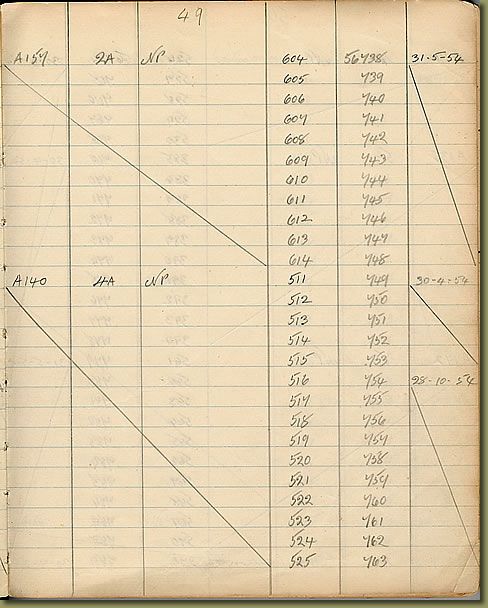 49
A157 2A NP 604 56738 31-5-54
605 739
606 740
607 741
608 742
609 743
610 744
611 745
612 746
613 747
614 748
A140 4A NP 511 749 30-4-54
512 750
513 751
514 752
515 753
516 754 28-10-54
517 755
518 756
519 757
520 758
521 759
522 760
523 761
524 762
525 763